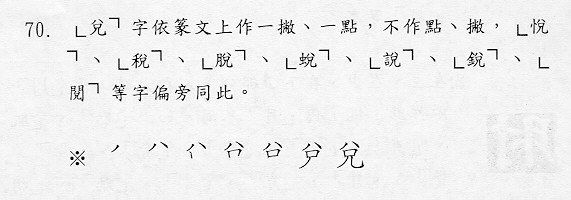 70. ﹂兌﹁字依篆文上作一撇、一點，不作點、撇，﹂悅
﹁、﹂稅﹁、﹂脫﹁、﹂蛻﹁、﹂說﹁、﹂銳﹁、﹂
閱﹁等字偏旁同此。
※